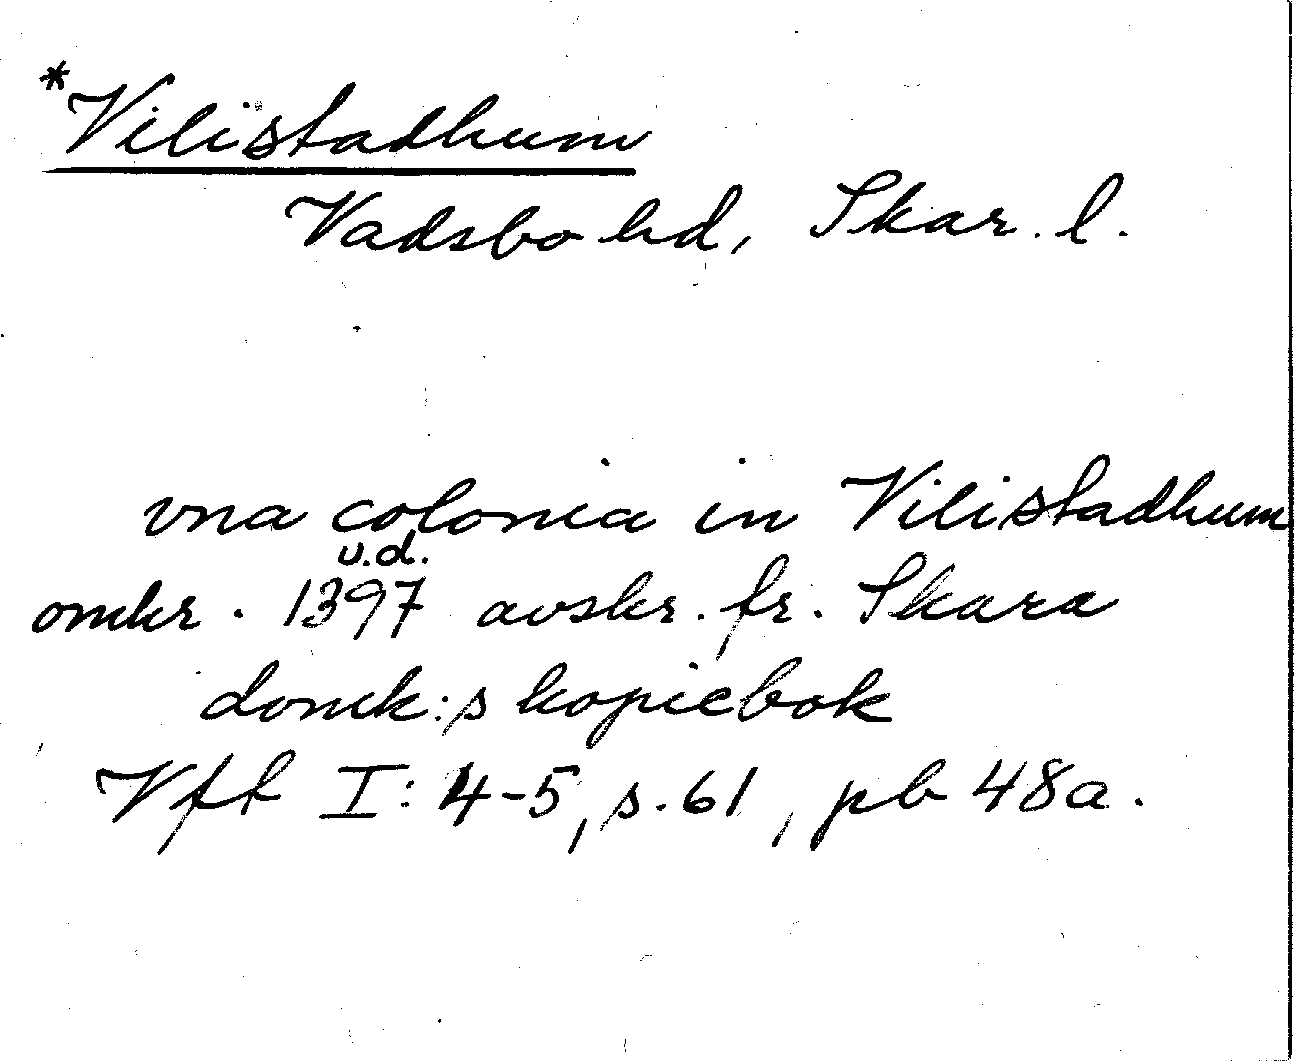 *Vilistadhum
Vadsbo hd, Skar. l.
vna colonia in Vilistadhum
u.d.
omkr. 1397 avskr. fr. Skara
domk:s kopiebok
Vft I: 4-5, s. 61, pb 48a.